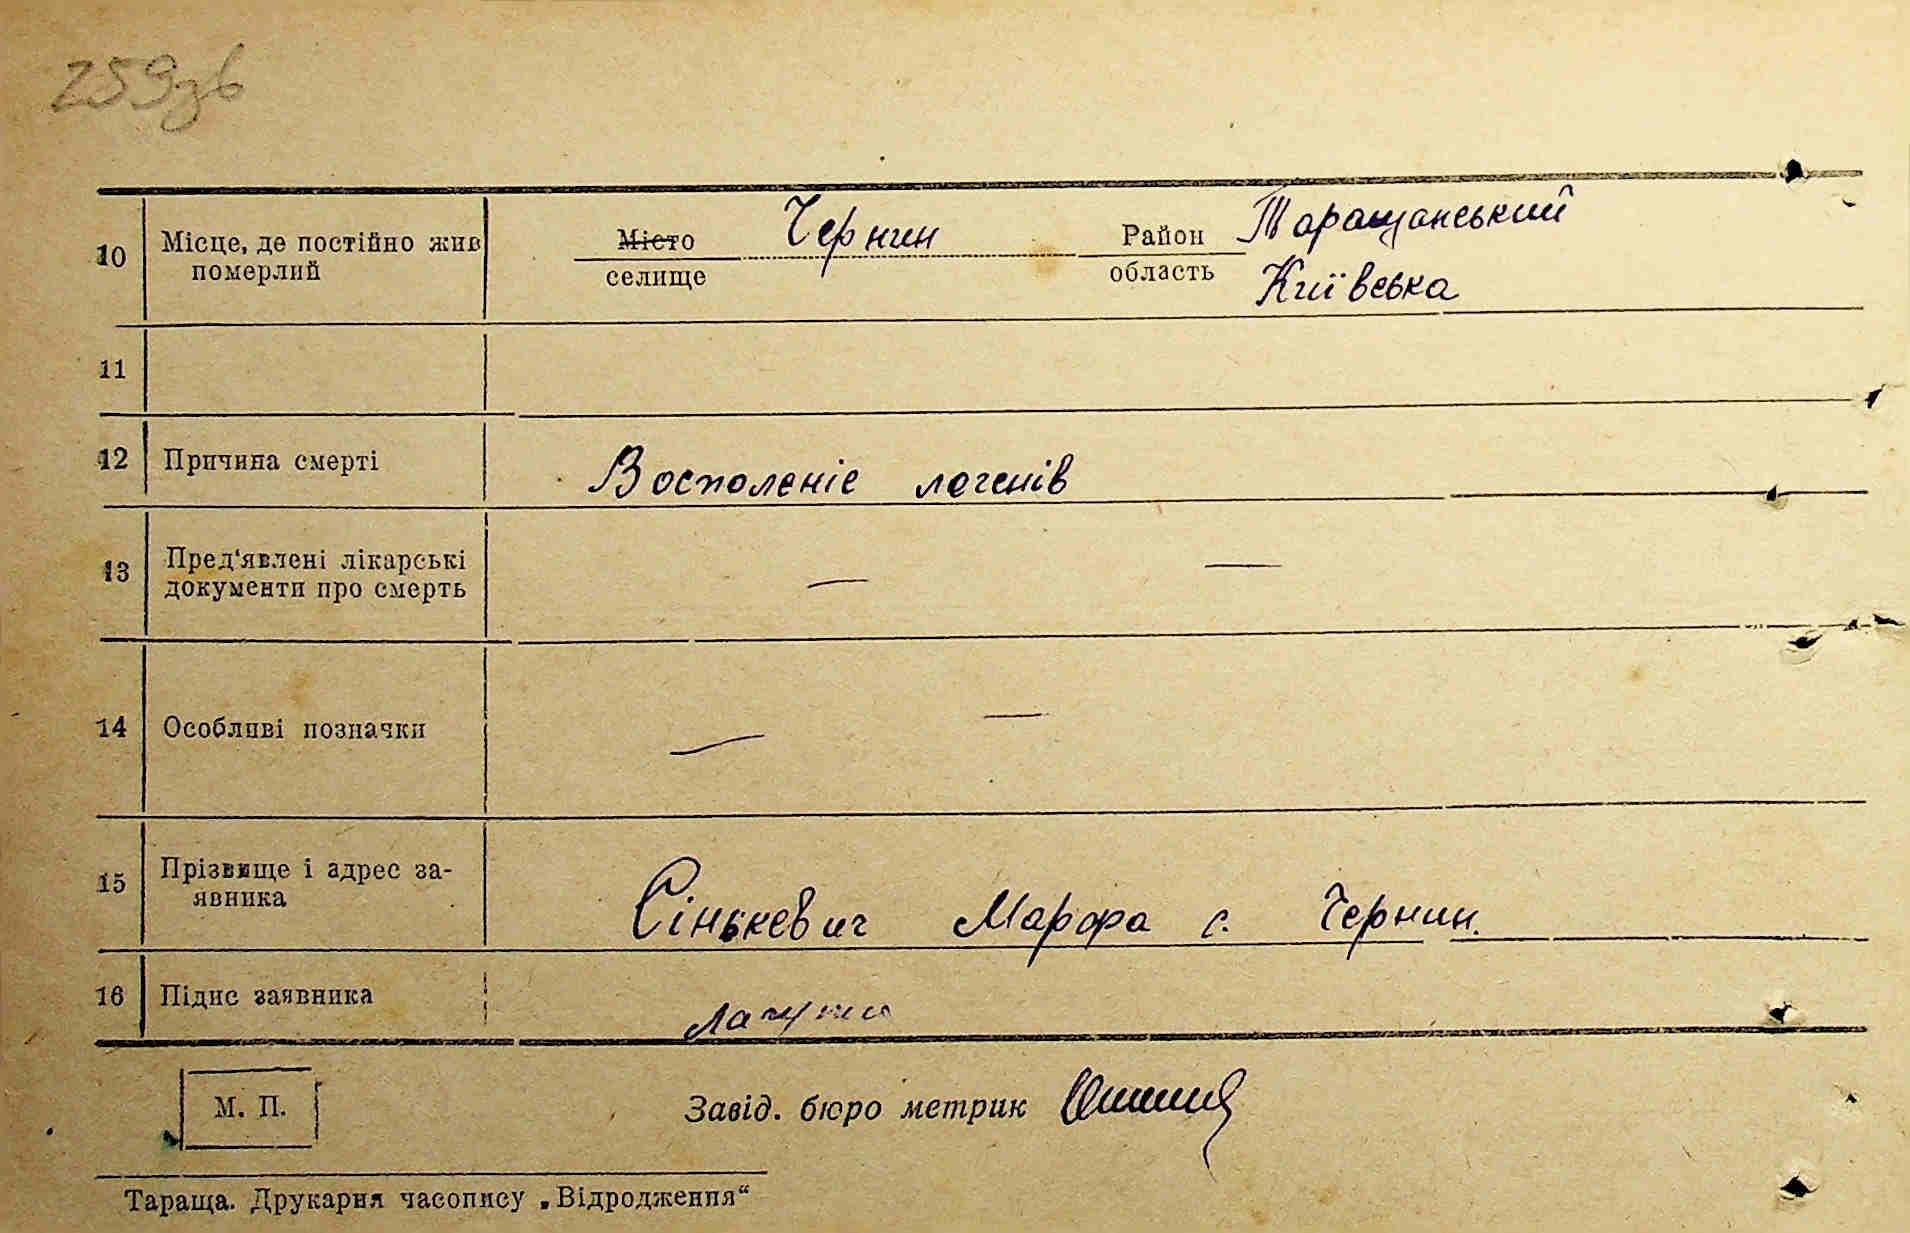 259зв
10 Місце, де постійно жив померлий Місто селище Чернин Район область Таращанський Київська
11
12 Причина смерті Восполеніе легенів
13 Пред'явлені лікарські документи про смерть — —
14 Особливі позначки — —
15 Прізвище і адрес заявника Сінькевич Марфа с. Чернин.
16 Підпис заявника
М. П.
Завід. бюро метрик
Тараща. Друкарня часопису „Відродження“